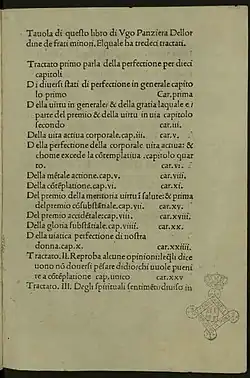 Tauola di questo libro di Vgo Panziera Dellor
dine de frati minori. Elquale ha tredeci tractati.
Tractato primo parla della perfectione per dieci
capitoli
D i diuersi stati di perfectione in generale capito
lo primo Car. prima
D ella uirtu in generale: & della gratia laquale e
parte del premio & della uirtu in uia capitolo
secondo car. iii.
Della uita actiua corporale. cap. iii. car. v.
D ella perfectione della corporale uita actiua: &
chome excede la cõtemplatiua. capitolo quar
to. car. vi.
Della mẽtale actione. cap. v. car. viii.
Della cõtẽplatione. cap. vi. car. xi.
Del premio della memoria uirtu & salute: & prima
del premio cõsubstãtiale. cap. vii. car. xv.
Del premio accidẽtale: cap. viii. car. xviii.
Della gloria substãtiale. cap. viiii. car. xx.
D ella uiatica perfectione di nostra
donna. cap. x. car. xxiiii.
T ractato. II. Reproba alcune opinioni: leq̃li dice
uono nõ douersi pẽsare didio: chi uuole pueni
re a cõtẽplatione cap. unico car. xxv
Tractato. III. Degli spirituali sentimẽti: diuiso in